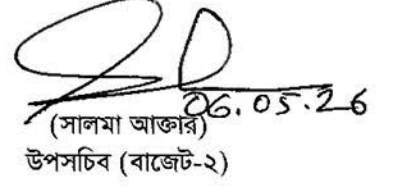 06.05.26
(সালমা আক্তার)
উপসচিব (বাজেট-২)